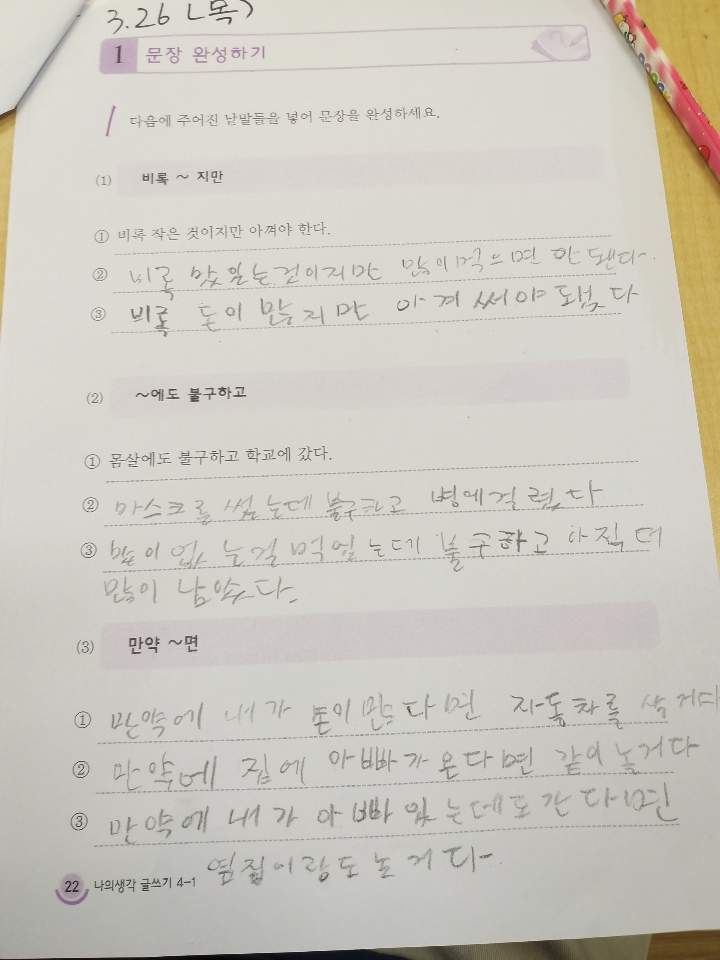 3.26 (목)
1 문장 완성하기
다음에 주어진 낱말들을 넣어 문장을 완성하세요.
(1) 비록 ~ 지만
① 비록 작은 것이지만 아껴야 한다.
② 비록 맛있는것이지만 많이먹으면 안 됀다.
③ 비록 돈이 많지만 아계 써야 됀다
(2) ~에도 불구하고
① 몸살에도 불구하고 학교에 갔다.
② 마스크를 썼는데 불구하고 병에걸렸다
③ 많이 불구하고 아직 더
많이 남았다.
(3) 만약 ~면
① 만약에 내가 돈이많다면 자동차를 살거다
② 만약에 집에 아빠가 온다면 같이 놀거다
③ 만약에 내가 아빠 있는데도 간다면
옆집이랑도 놀거다.
22 나의생각 글쓰기 4-1